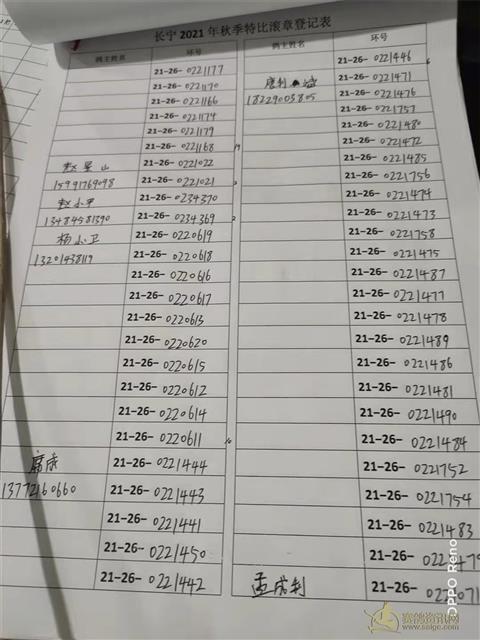 长宁 2021 年秋季特比滚章登记表
鸽主姓名 环号
21-26-0221177
21-26-0221170
21-26-0221166
21-26-0221174
21-26-0221179
21-26-0221168
赵星山 21-26-0221022
15991769098 21-26-0221021
赵小平 21-26-0234370
13484581390 21-26-0234369
杨小卫 21-26-0220619
13201438119 21-26-0220618
21-26-0220616
21-26-0220617
21-26-0220613
21-26-0220620
21-26-0220615
21-26-0220612
21-26-0220614
21-26-0220611
21-26-0221444
13772160660 21-26-0221443
21-26-0221441
21-26-0221450
21-26-0221442
鸽主姓名 环号
21-26-0221446
21-26-0221471
18229005805 21-26-0221476
21-26-0221757
21-26-0221480
21-26-0221472
21-26-0221485
21-26-0221756
21-26-0221474
21-26-0221473
21-26-0221758
21-26-0221475
21-26-0221487
21-26-0221477
21-26-0221478
21-26-0221489
21-26-0221486
21-26-0221481
21-26-0221490
21-26-0221484
21-26-0221752
21-26-0221754
21-26-0221483
21-26-
孟成利 21-26-
OPPO Reno
赛鸽资讯网
www.saige.com